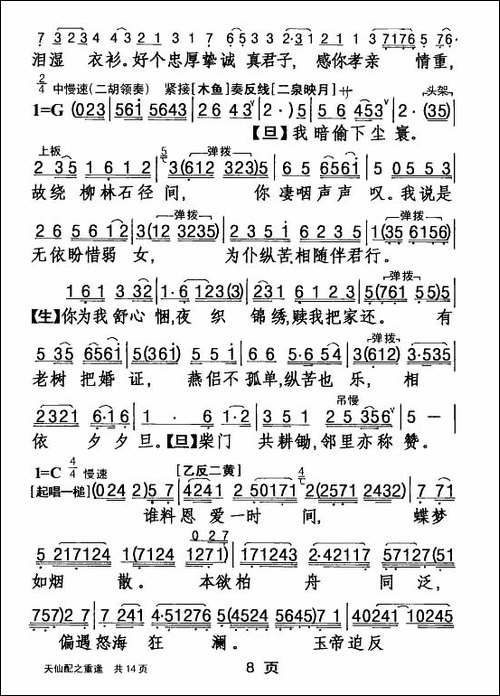 7 3234 3 4 3 27 6 5 653 32·31 2 1 3 7176175 76·
泪湿 衣衫。好个忠厚挚诚 真君子, 感你孝亲 情重,
2/4 中慢速(二胡领奏) 紧接[木鱼]奏反线[二泉映月]サ 头架
1=G (023 | 561 5643 | 2643 2·6 43 | 5 3·2) 2 | 5 6 453 | 2·(35)
【旦】我 暗偷下尘 寰。
上板 弹拨
2 35 | 1 6 1 2 | 3(612 3235 | 3235) 5 | 6 5 6561 | 5 0 5 5 3
故绕 柳林石径 间, 你 凄咽声声 叹。我说是
弹拨 弹拨
2 6 5 6 12 | 3(12 3235) | 2 35 1 6 2 3 5 | 1(35 6156)
无依盼惜弱 女, 为仆纵苦,相随伴君行。
弹拨
1 6 1 3 32 | 1·6 123(3) | 231 6 1 2 3 | 5(761 55)5
【生】你为我 舒心 悃,夜 织 锦绣,赎我把家还。 有
弹拨
5 35 6561 | 5(361) 5 | 5 51 6 6 | 5·6 54 | 3(612) 3·535
老树 把婚 证, 燕侣不 孤单,纵苦也 乐, 相
吊慢
2321 6·16 | 1 · 6 12·1 | 3 5 1 2 5 356 | 5 —
依 夕夕旦。【旦】柴门 共耕锄,邻里亦称 赞。
1=C 4/4 慢速 [乙反二黄]
[起唱一槌](024 2)5 7 | 4241 2 50171 | 2(2571 2432) | 7 7
谁料恩 爱一时 间, 蝶梦
0 2 7
5 217124 | 1(7124 1271) | 171243 2 42117 | 57127(51
如烟 散。本欲柏 舟 同 泛,
757)2 7 | 7 241 4·51276 | 5(45724 5)2 1 | 40241 10245
偏遇怒海 狂 澜。 玉帝迫反
天仙配之重逢 共14页 8 页